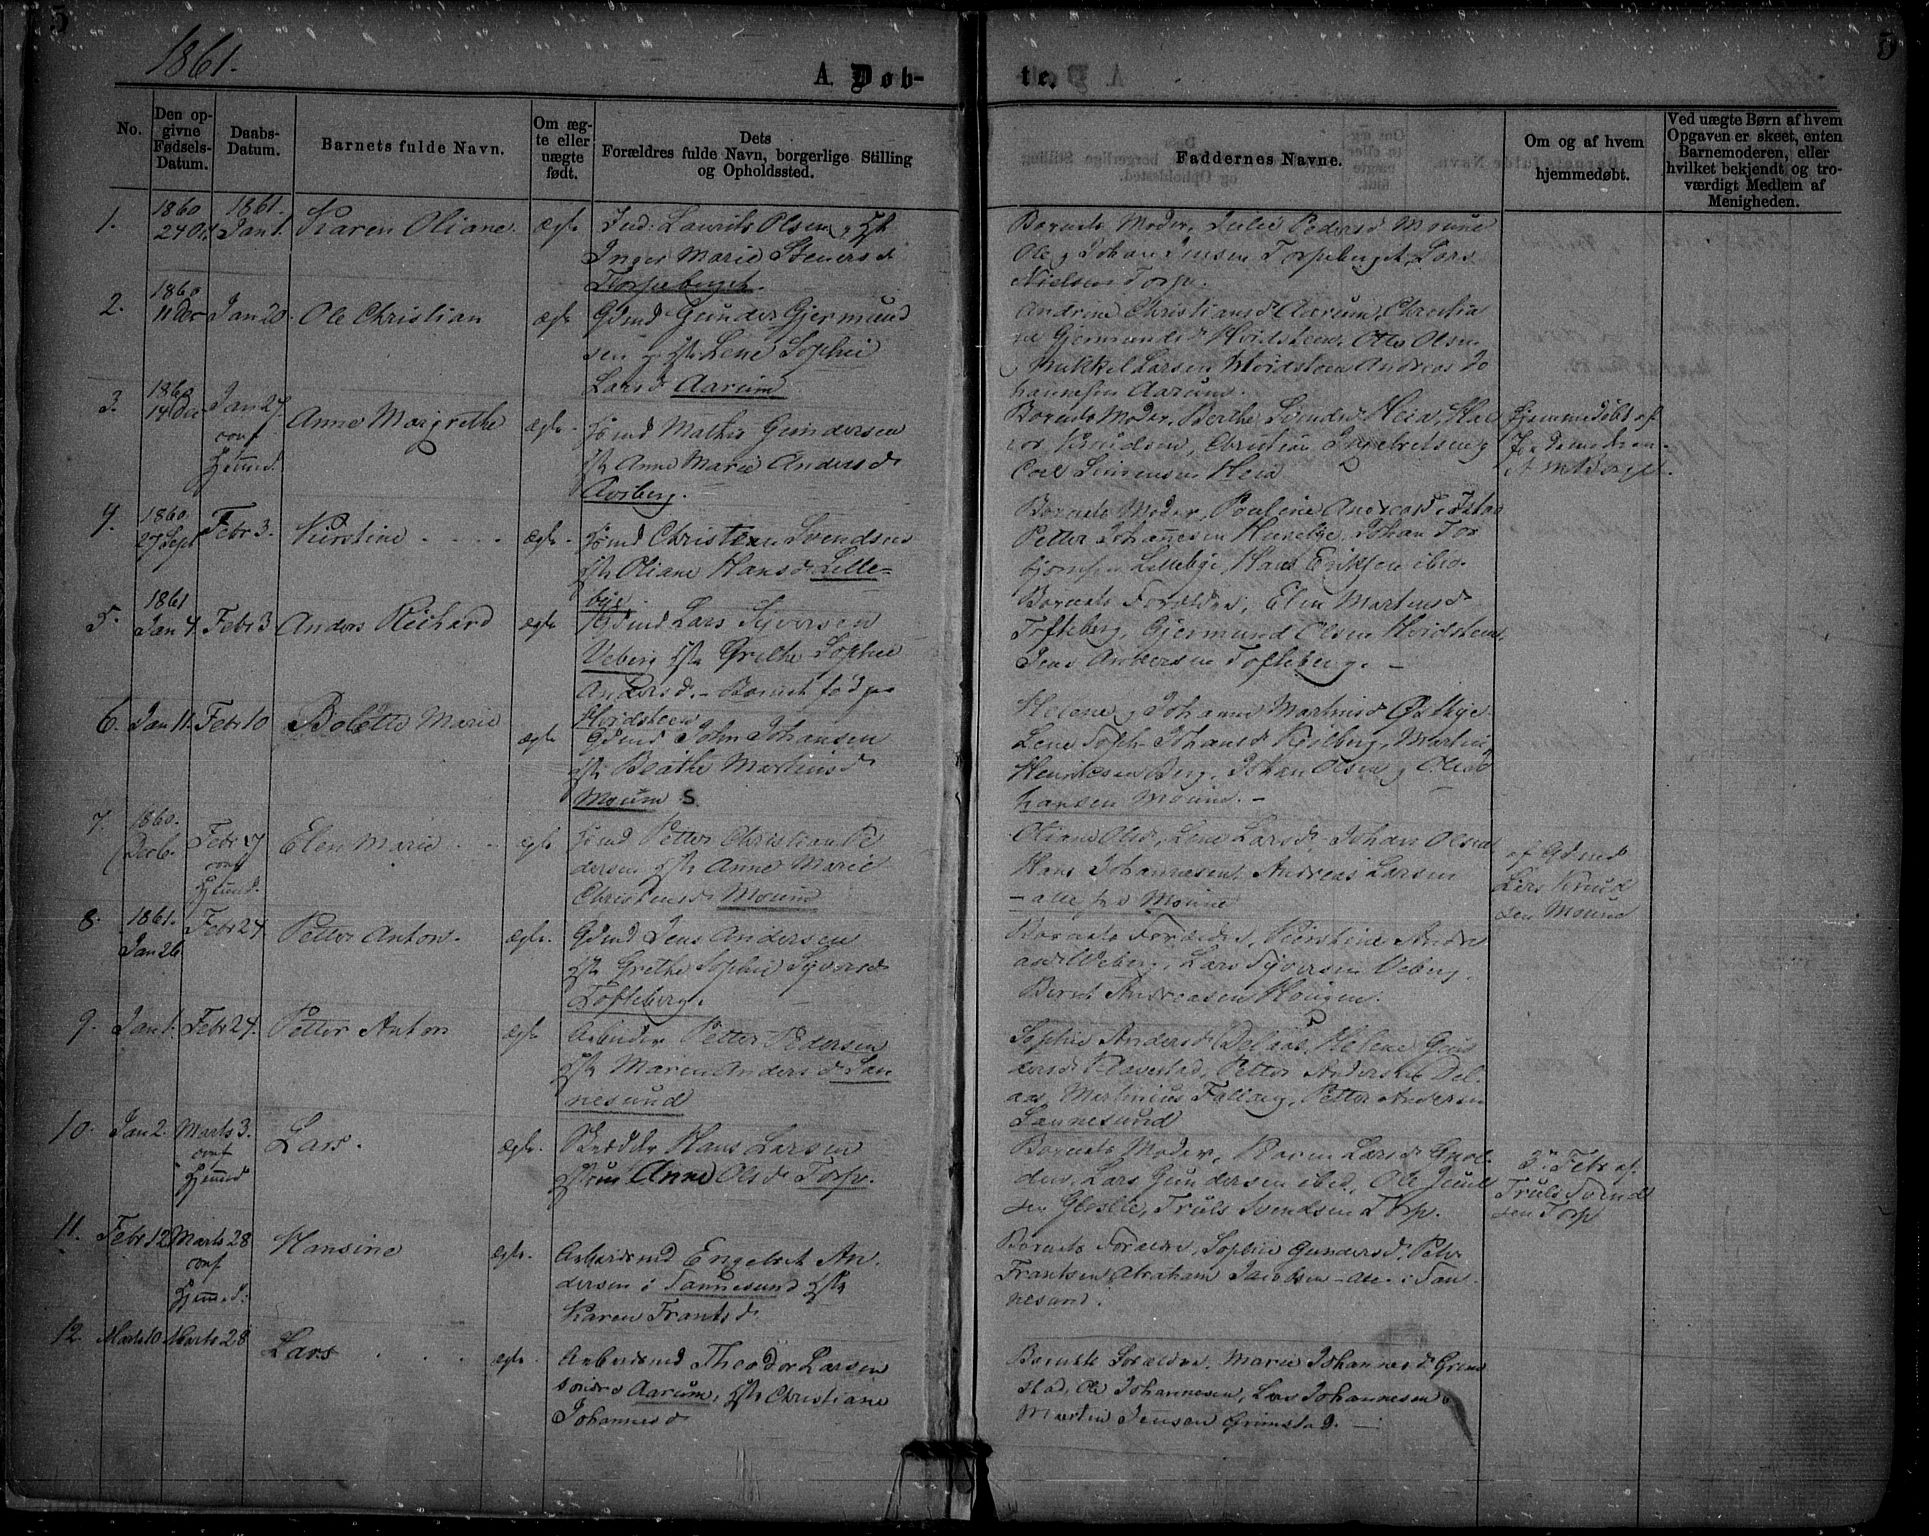 5
5
1861.
A. Døb-
te.
No.
Den op-
givne
Fødsels-
Datum.
Daabs-
Datum.
Barnets fulde Navn.
Om æg-
te eller
uægte
født.
Dets
Forældres fulde Navn, borgerlige Stilling
og Opholdssted.
Faddernes Navne.
Om og af hvem
hjemmedøbt.
Ved uægte Børn af hvem
Opgaven er skeet, enten
Barnemoderen, eller
hvilket bekjendt og tro-
værdigt Medlem af
Menigheden.
1.
1860
24 Oct
1861.
Jan 1.
Karen Oliane
ægte
Ind. Laurits Olsen og Hst
Inger Marie Steners d
Torpeberget.
Barnets Moder, Julie Peders d Moum
Ole og Johan Jensen Torpeberget, Lars
Nielsen Torp.
2.
1860
11 Dec
Jan 20.
Ole Christian
ægte
Gdmd Gunder Gjermund
sen og Hst Lene Sophie
Lars d Aarum
Andrine Christians d Aarum, Christia
ne Gjermunds d Hvidsteen, Otto Olsen
og Mikkel Larsen Hvidsteen Andreas Jo
hannesen Aarum.
3.
1860
14 Dec
Jan 27.
conf
Hjemmd.
Anne Margrethe
ægte.
Hsmd Mathis Gundersen
Hst Anne Marie Anders d
Avsberg.
Barnets Moder, Berthe Svends d Heia, Hal
vor Knudsen, Christian Engebretsen og
Carl Simensen Heia
Hjemmedøbt af
Jordemoderen
4.
1860
27 Sept
Febr 3.
Kirstine
ægte
Hsmd Christian Svendsen
Hst Oliane Hans d Lille-
bye
Barnets Moder, Pouline Andreas d
Petter Johannesen Huneby, Johan Tor
bjørnsen Lillebye, Hans Eriksen ibid.
5.
1861
Jan 4.
Febr 3
Anders Richard
ægte
Gdmd Lars Syversen
Veberg Hst Grethe Sophie
Anders d. – Barnet fød paa
Hvidsteen
Barnets Forældre, Elen Martens d
Tofteberg, Gjermund Olsen Hvidsteen,
Jens Andersen Tofteberg. –
6.
Jan 11.
Febr 10
Bolette Marie
ægte
Gdmd John Johansen
Hst Beathe Martins d
Moum S.
Helene og Johanne Martins d Østbye
Lene Soph. Johans d Kjølberg, Martin
Henriksen Berg, Johan Olsen og Ole Jo
hansen Moum. –
7.
1860.
Dec 6.
Febr 17
conf
Hjmmd.
Elen Marie
ægte
Hsmd Petter Christian Pe
dersen Hst Anne Marie
Christens d Moum
Oliane Ols d, Lene Lars d Johan Olsen
Hans Johannesen, Andreas Larsen
– alle paa Moum
af Gdmd
Lars Knud
sen Moum
8.
1861.
Jan 26
Febr 24
Petter Anton.
ægte.
Gdmd Jens Andersen
Hst Grethe Sophie Syvers d
Tofteberg.
Barnets Forældre, Kirstine Andre
as d Veberg, Lars Syversen Veberg,
Bernt Andreasen Hougen.
9.
Jan 1.
Febr 24.
Petter Anton
ægte
Arbeider Petter Pedersen
Hst Maren Anders d San
nesund
Sophie Anders d Delaas, Helene Gun
ders d Klavestad, Petter Andersen Del
aas, Martinius Fallang, Petter Andersen
Sannesund
10.
Jan 2.
Marts 3.
conf
Hjemmd
Lars.
ægte.
Skrædder Hans Larsen
Hstru Anne Ols d Torp.
Barnets Moder, Karen Lars d
Lars Gundersen ibid, Ole Jens
sen Glosle, Truls Svendsen Torp.
3. Febr af
Truls Svend
sen Torp
11.
Febr 12
Marts 28
conf
Hjemmd.
Hansine
ægte.
Arbeidsmd Engelbret An
dersen i Sannesund Hst
Karen Frants d
Barnets Forældre, Sophie Gunders d, Peter
Frantsen, Abraham Jacobsen – alle i San
nesund.
12.
Marts 10
Marts 28
Lars
ægte.
Arbeidsmd Theodor Larsen
søndre Aarum, Hst Christiane
Johannes d
Barnets Forældre, Marie Johannes d Grim
stad, Ole Johannesen, Lars Johannesen
Martin Jensen Grimstad. –